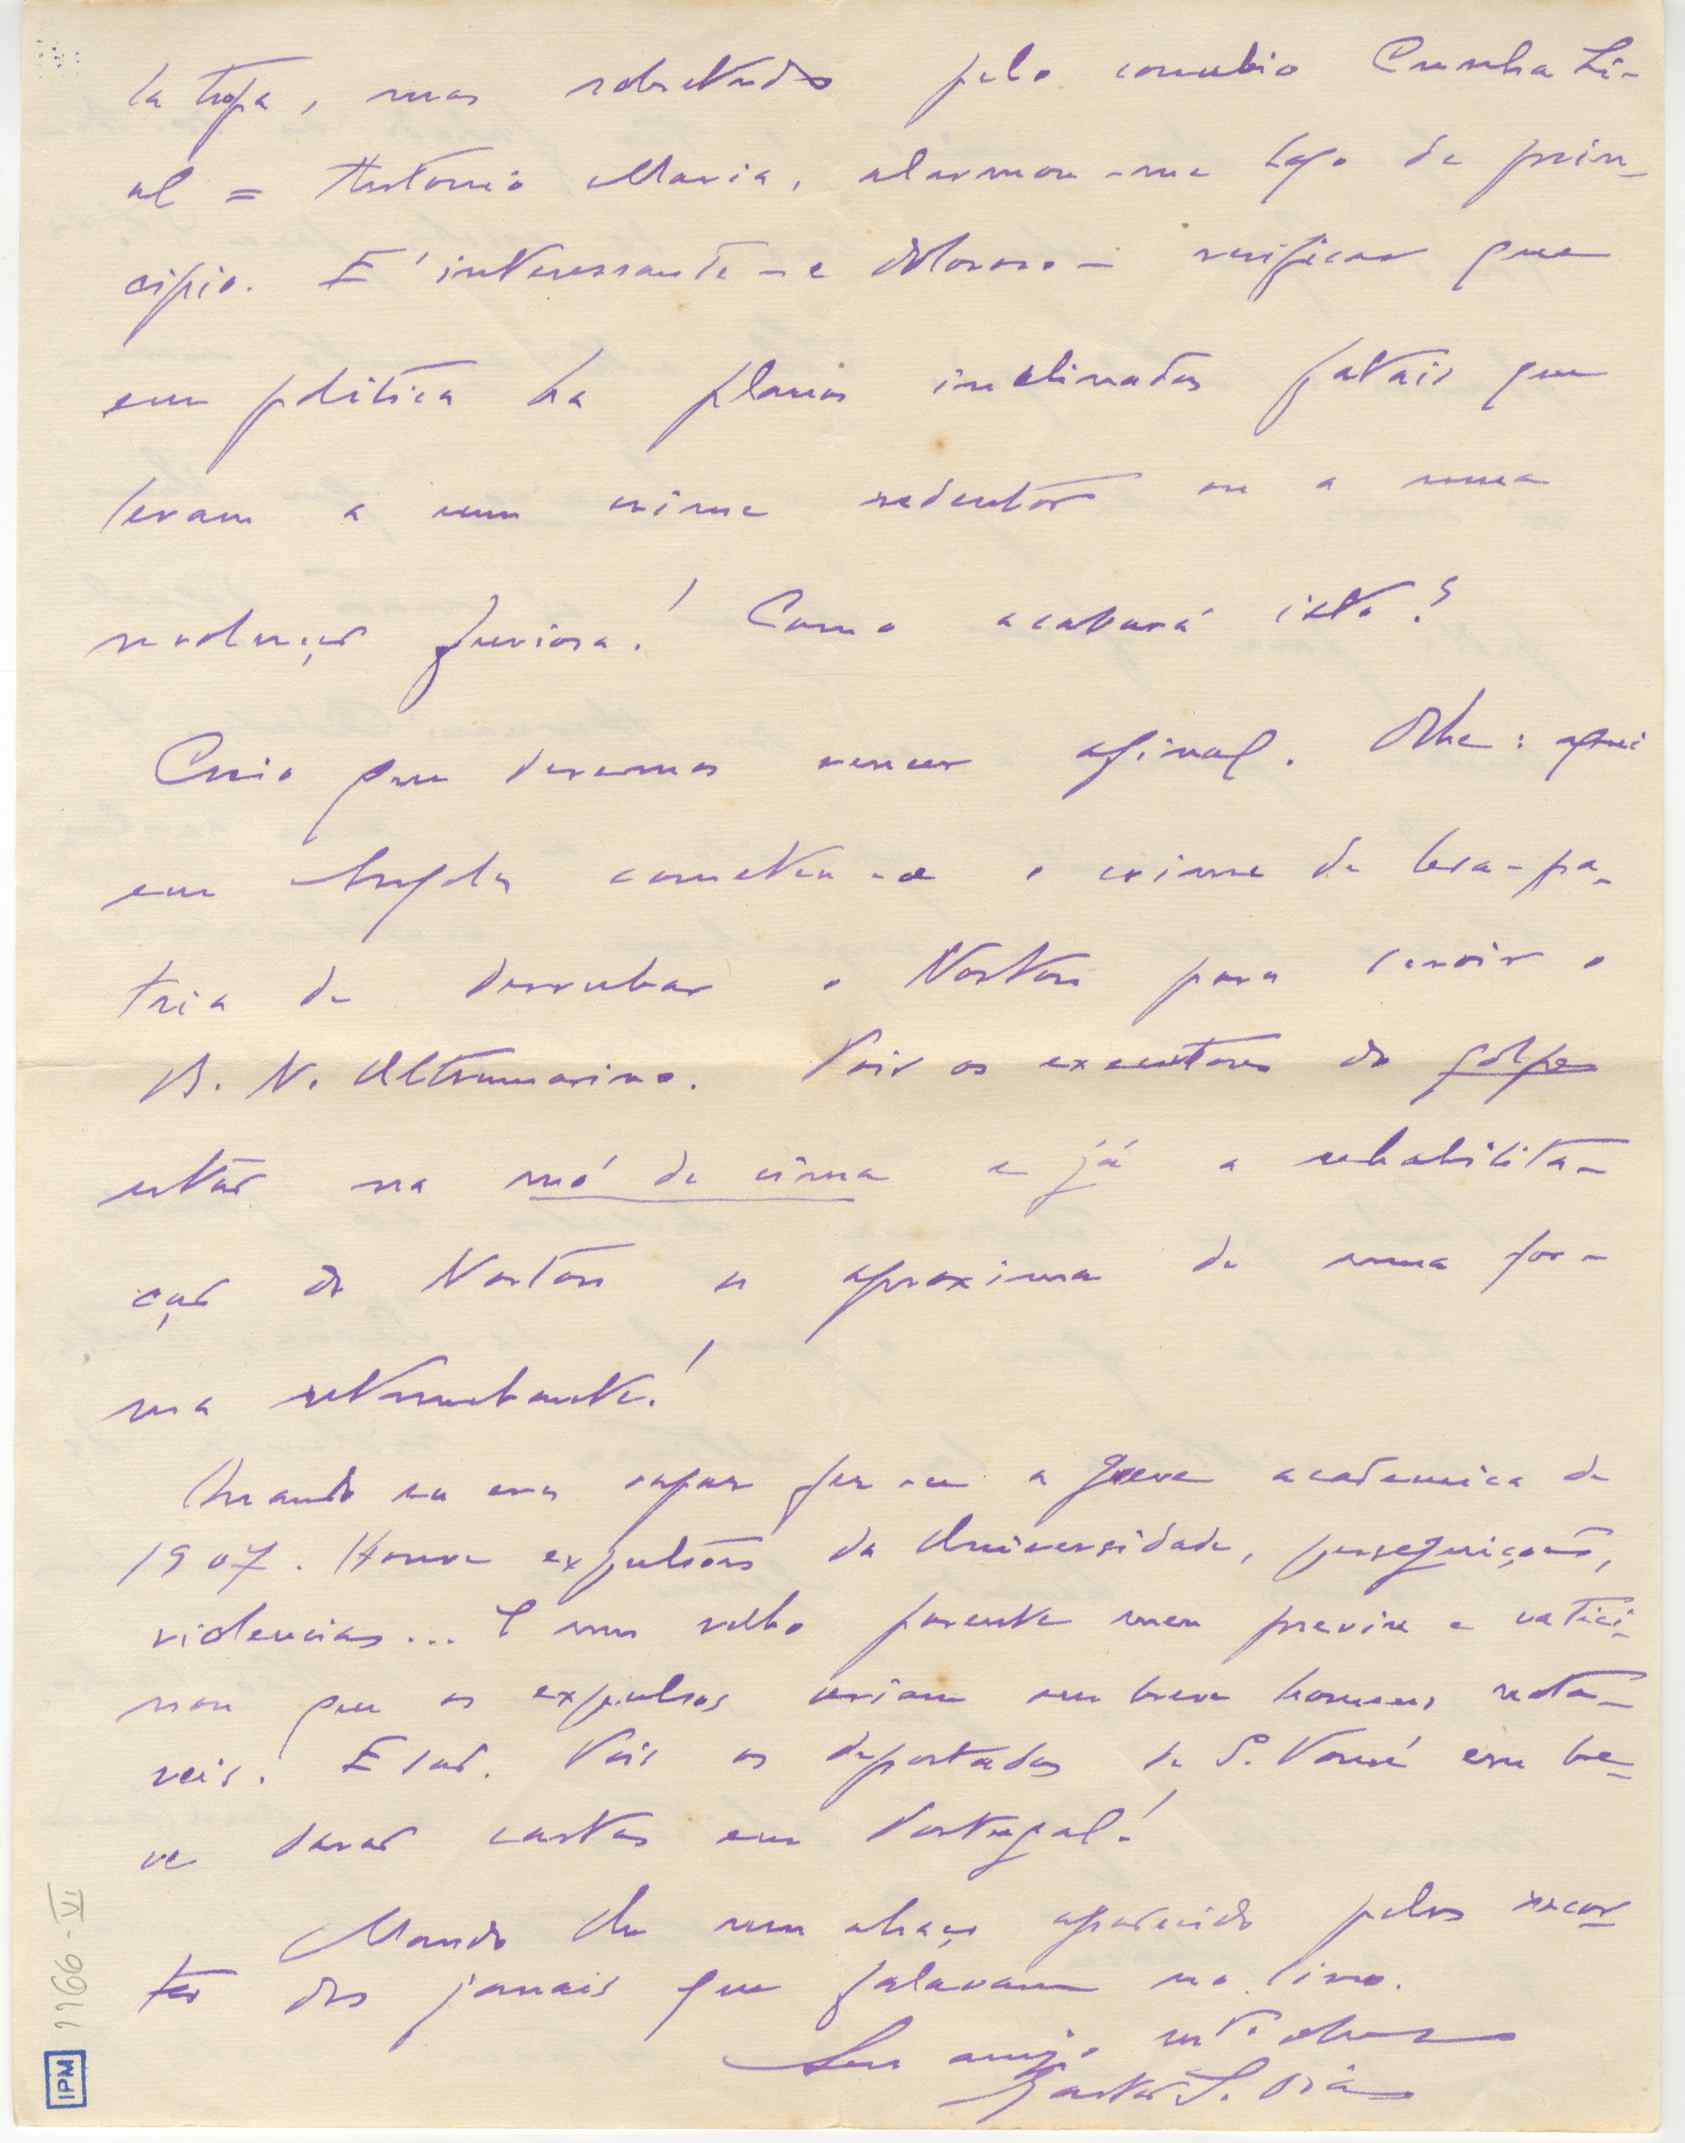 la tropa, mas sobretudo pelo conubio Cunha Le-
al = Antonio Maria, alarmou-me logo de prin-
cipio. E' interessante - e doloroso - verificar que
em politica ha planos inclinados fatais que
levam a um crime redentor ou a uma
revolução furiosa! Como acabará isto?
Creio que devemos vencer afinal. Olhe: aqui
em Angola cometeu-se o crime de lesa-pa-
tria de derrubar o Norton para servir o
B. N. Ultramarino. Pois os executores do golpe
estão na mó de cima e já a rehabilita-
ção do Norton se aproxima de uma for-
ma retumbante!
Quando eu era rapaz fez-se a greve academica de
1907. Houve expulsões da Universidade, perseguições,
violencias... E um velho parente meu previu e vatici-
nou que os expulsos seriam em breve homens nota-
veis! E são. Pois os deportados de S. Tomé em bre-
ve darão cartas em Portugal!
Mando lhe um abraço agradecido pelos recor-
tes dos jornais que falavam no livro.
Seu amigo mto
Gastão S. Dias
1166-VI
IPM